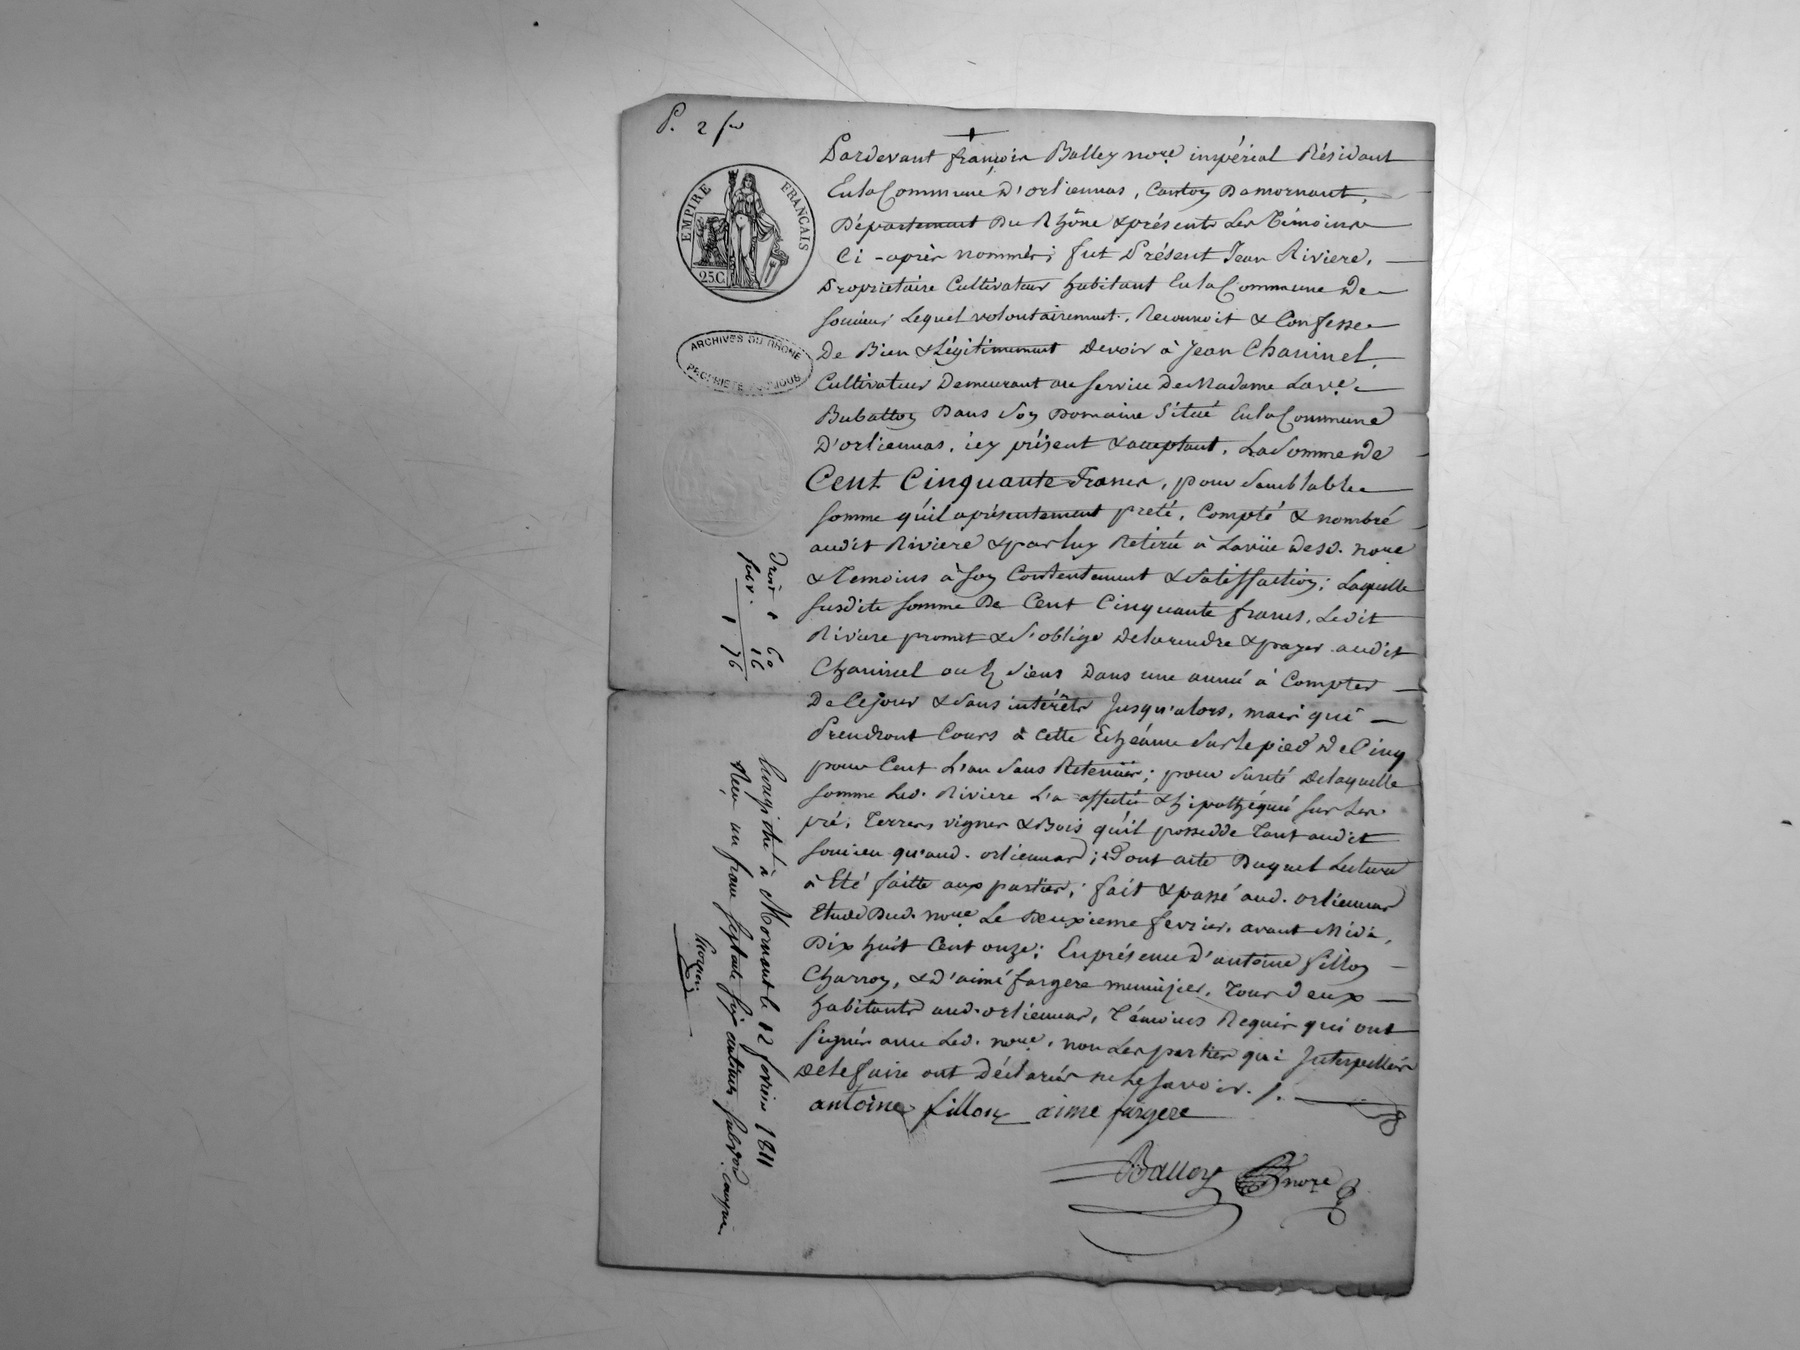 P. 2 fer
EMPIRE FRANÇAIS
25C
ARCHIVES DU RHONE
PROPRIETE
Pardevant françois Balley nore impérial Résidant
En la Commune d'orliennas, Canton Damornant,
Département Du Rhône & présents Les Témoins
Ci-après nommés; fut Présent Jean Riviere,
Proprietaire Cultivateur habitant En la Commune De
soucieu Lequel volontairement, Reconnoit & Confesse
De Bien & Légitimement devoir à Jean Chaninel,
Cultivateur Demeurant au service De Madame La ve
Dans son Domaine Situé En la Commune
D'orliennas, icy présent & acceptant, La Somme De
Cent Cinquante Francs, pour Semblable
somme qu'il a présentement preté, Compté & nombré
audit Riviere & par luy Retiré à La vüe desd. nore
& Temoins à son Contentement & Satisfaction; Laquelle
susdite somme De Cent Cinquante francs, Ledit
Riviere promet & S'oblige de la rendre & payer audit
Chaninel ou Siens Dans une année à Compter
De Ce jour & Sans intérêts Jusqu'alors, mais qui
Prendront Cours à Cette Echéance Sur le pied De Cinq
pour Cent L'an Sans Retenüe; pour Sureté De laquelle
somme Led. Riviere L'a affectée & hipothéquée sur Les
pré, Terres, vignes & Bois qu'il possedde Tant audit
soucieu qu'aud. orliennas; Dont acte Duquel Lecture
à Eté faitte aux parties; fait & passé aud. orliennas
Etude Dud. nore Le Deuxieme fevrier, avant Midi,
Dix huit Cent onze; En présence d'antoine fillon
Charron, & d'aimé fargere menuijier, Tous deux
habitants aud. orliennas, Témoins Requis qui ont
signés avec Led. nore, non Les parties qui Interpellés
De le faire ont Déclarés ne Le Savoir ./.
antoine fillon aime fargere
Balley nore
Droit 1 60
subv. 16
1 76
Enregistré à Mornant le 12 fevrier 1811
Reçu un franc soixante seize centimes subvon. comprise